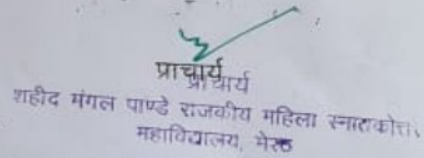 प्राचार्य
प्राचार्य
शहीद मंगल पाण्डे राजकीय महिला स्नातकोत्त
महाविद्यालय, मेरठ